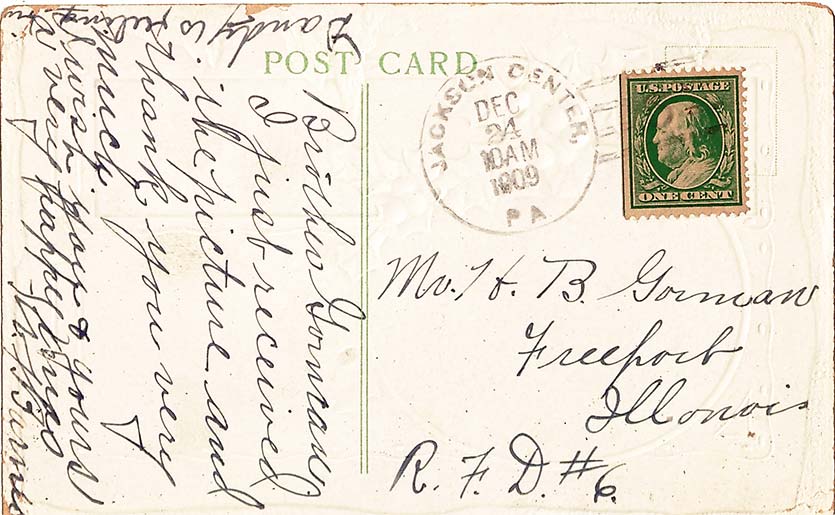 POST CARD
Brother Gorman
I just received
the picture and
thank you very
much
I wish you & yours
a very happy
Dandy is feeling
JACKSON CENTER,
DEC
24
10AM
1909
PA
U.S. POSTAGE
ONE CENT
Mr. H. B. Gorman
Freeport
Illonois
R. F. D. # 6.